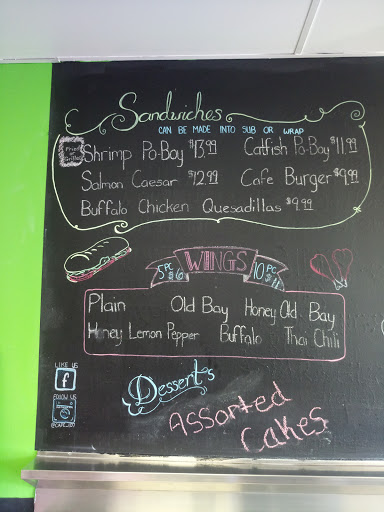 Sandwiches
CAN BE MADE INTO SUB OR WRAP
Fried or Grilled
Shrimp Po-Boy $13.99 Catfish Po-Boy $11.99
Salmon Caesar $12.99 Cafe Burger $9.99
Buffalo Chicken Quesadillas $9.99
5 PC $6 WINGS 10 PC $11
Plain Old Bay Honey Old Bay
Honey Lemon Pepper Buffalo Thai Chili
LIKE US
f
FOLLOW US
Dessert's
Assorted
Cakes